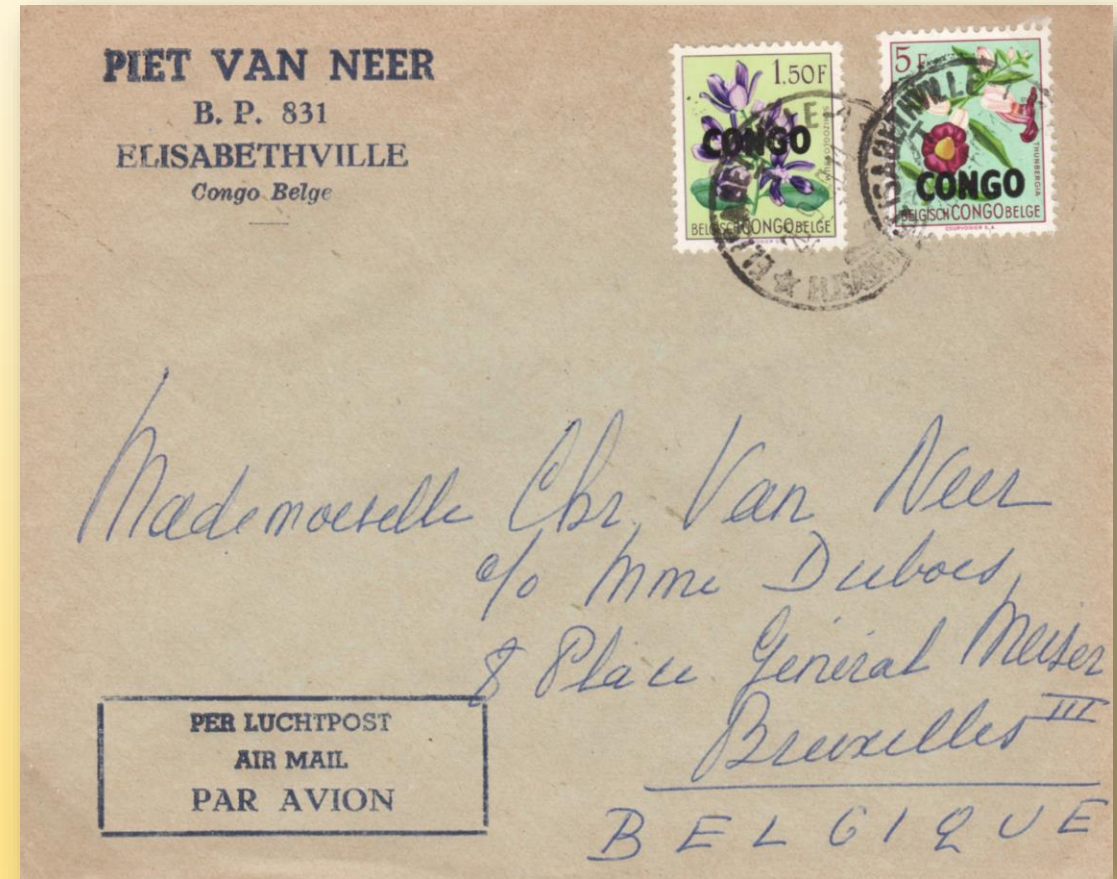 PIET VAN NEER
B. P. 831
ELISABETHVILLE
Congo Belge
1.50F
CONGO
BELGISCHCONGOBELGE
5 F
THUNBERGIA
CONGO
BELGISCHCONGOBELGE
COURVOISIER S.A.
ELISABETHVILLE
ELISABETHVILLE
Mademoiselle Chr. Van Neer
c/o Mme Dubois,
8 Place Général Meiser
Bruxelles III
BELGIQUE
PER LUCHTPOST
AIR MAIL
PAR AVION